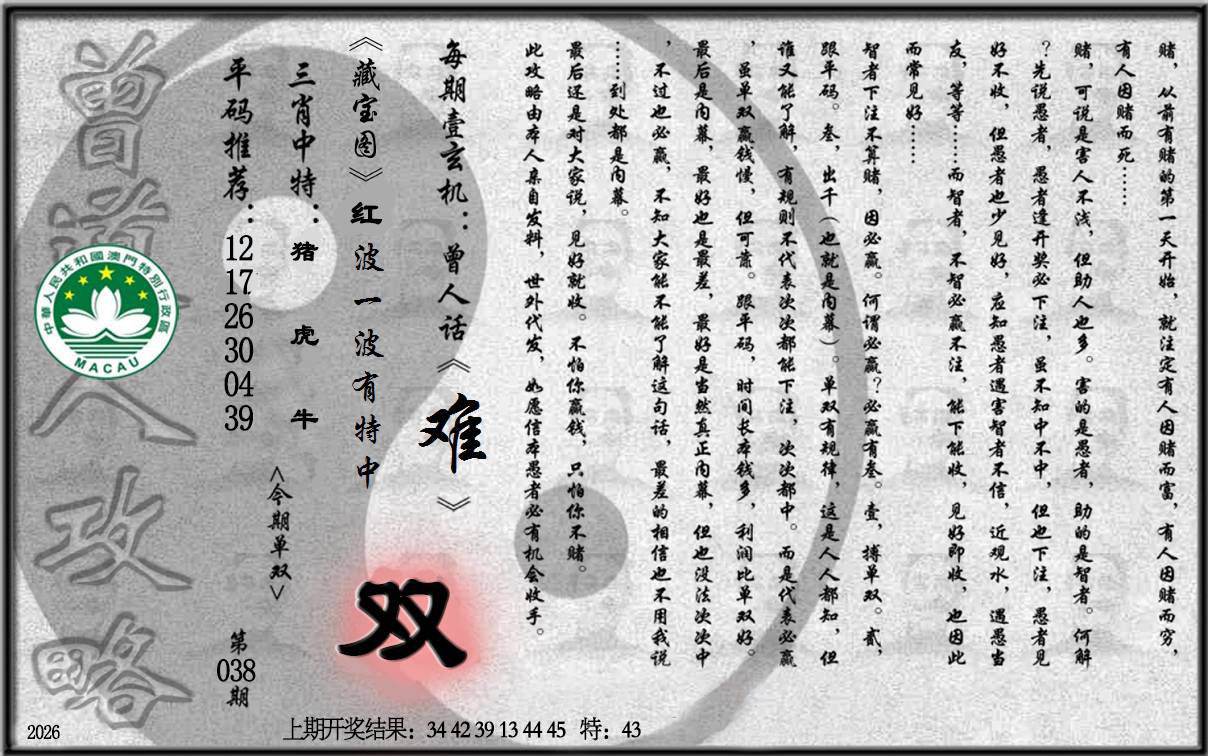 赌，从前有赌的第一天开始，就注定有人因赌而富，有人因赌而穷，
有人因赌而死……
赌，可说是害人不浅，但助人也多。害的是愚者，助的是智者。何解
？先说愚者，愚者逢开奖必下注，虽不知中不中，但也下注，愚者见
好不收，但愚者也少见好，应知愚者遇害智者不信，近观水，遇愚当
友，等等……而智者，不智必赢不注，能下能收，见好即收，也因此
而常见好……
智者下注不算赌，因必赢。何谓必赢？必赢有叁。壹，搏单双。贰，
跟平码。叁，出千（也就是内幕）。单双有规律，这是人人都知，但
谁又能了解，有规则不代表次次都能下注，次次都中。而是代表必赢
，虽单双赢钱慢，但可靠。跟平码，时间长本钱多，利润比单双好。
最后是内幕，最好也是最差，最好是当然真正内幕，但也没法次次中
，不过也必赢，不知大家能不能了解这句话，最差的相信也不用我说
……到处都是内幕。
最后还是对大家说，见好就收。不怕你赢钱，只怕你不赌。
此攻略由本人亲自发料，世外代发，如愿信本愚者必有机会收手。
每期壹玄机：曾人话《难》
《藏宝图》红波一波有特中
双
三肖中特：猪虎牛
<今期单双>
平码推荐：12 17 26 30 04 39
第038期
曾道人攻略
中華人民共和國澳門特別行政區
MACAU
2026
上期开奖结果：34 42 39 13 44 45 特：43